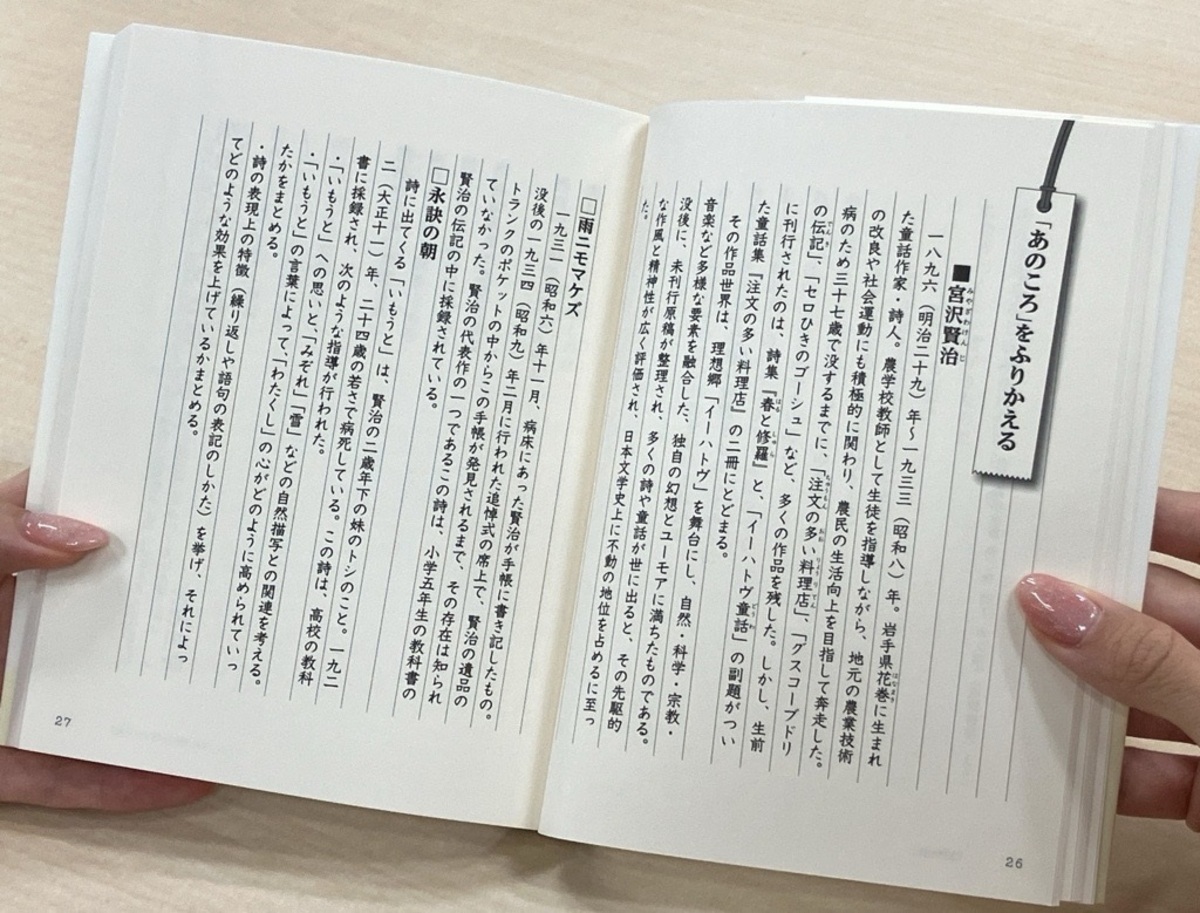 「あのころ」をふりかえる
■宮沢賢治
みやざわけんじ
一八九六（明治二十九）年〜一九三三（昭和八）年。岩手県花巻に生まれ
はなまき
た童話作家・詩人。農学校教師として生徒を指導しながら、地元の農業技術
の改良や社会運動にも積極的に関わり、農民の生活向上を目指して奔走した。
病のため三十七歳で没するまでに、「注文の多い料理店」、「グスコーブドリ
ちゅうもん おお りょうりてん
の伝記」、「セロひきのゴーシュ」など、多くの作品を残した。しかし、生前
でんき
に刊行されたのは、詩集『春と修羅』と、「イーハトヴ童話」の副題がつい
はる しゅら どうわ
た童話集『注文の多い料理店』の二冊にとどまる。
その作品世界は、理想郷「イーハトヴ」を舞台にし、自然・科学・宗教・
音楽など多様な要素を融合した、独自の幻想とユーモアに満ちたものである。
没後に、未刊行原稿が整理され、多くの詩や童話が世に出ると、その先駆的
な作風と精神性が広く評価され、日本文学史上に不動の地位を占めるに至っ
た。
26
□雨ニモマケズ
一九三一（昭和六）年十一月、病床にあった賢治が手帳に書き記したもの。
没後の一九三四（昭和九）年二月に行われた追悼式の席上で、賢治の遺品の
トランクのポケットの中からこの手帳が発見されるまで、その存在は知られ
ていなかった。賢治の代表作の一つであるこの詩は、小学五年生の教科書の
賢治の伝記の中に採録されている。
□永訣の朝
詩に出てくる「いもうと」は、賢治の二歳年下の妹のトシのこと。一九二
二（大正十一）年、二十四歳の若さで病死している。この詩は、高校の教科
書に採録され、次のような指導が行われた。
・「いもうと」への思いと、「みぞれ」「雪」などの自然描写との関連を考える。
・「いもうと」の言葉によって、「わたくし」の心がどのように高められていっ
たかをまとめる。
・詩の表現上の特徴（繰り返しや語句の表記のしかた）を挙げ、それによっ
てどのような効果を上げているかまとめる。
27